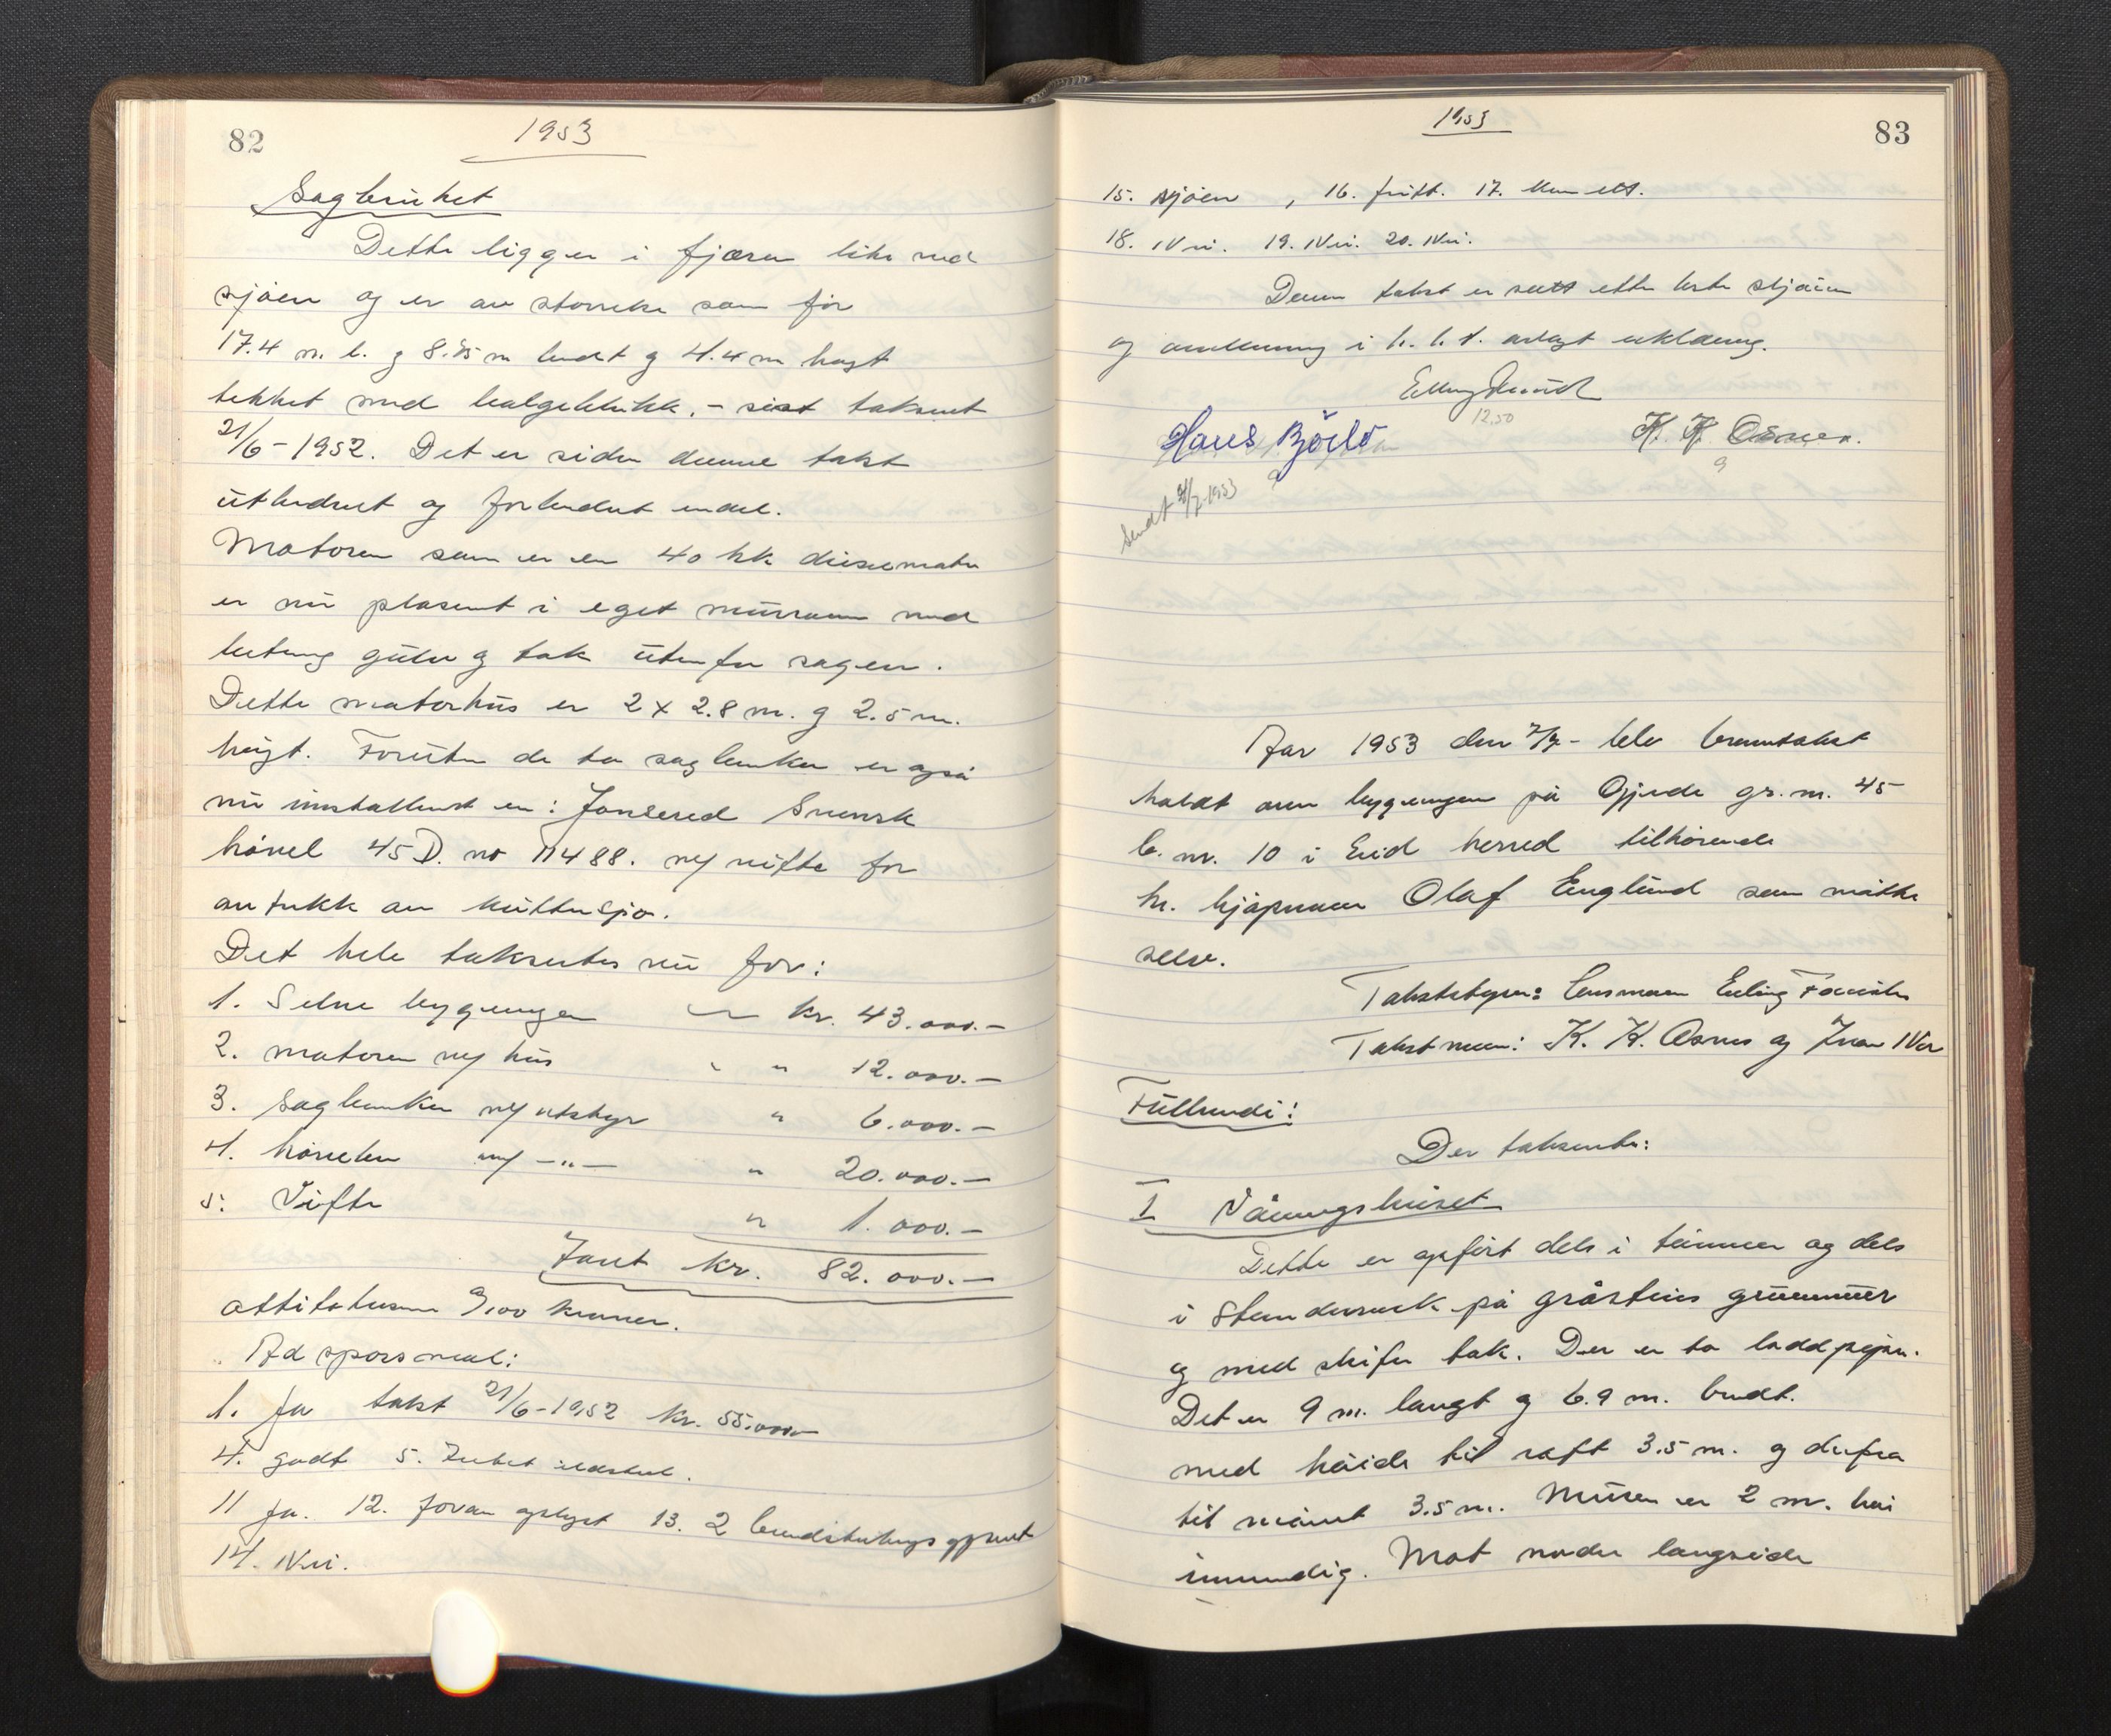 82
1953
Sagbruket
Dette ligger i fjæra like ved
sjøen og er av størrelse som før
17.4 m. l. og 8.75 m bredt og 4.4 m høgt
tekket med bølgeblikk. - sist taksert
21/6 - 1952. Det er siden denne takst
utbedret og forbedret endel.
Motoren som er en 40 hk diselmotor
er nu plasert i eget murrum med
betong gulv og tak utenfor sagen.
Dette motorhus er 2 x 2.8 m. og 2.5 m.
høgt. Foruten de to sagbenker er også
nu innstallert en: Jonsered Svensk
høvel 45 D. no 11488. ny vifte for
avtrekk av kutterspon.
Det hele takseres nu for:
1. Selve bygningen kr. 43.000.-
2. motoren m/ hus " " 12.000.-
3. sagbenker m/ utstyr " 6.000.-
4. høvelen m/ -"- " 20.000.-
5. Vifte " 1.000.-
Tsret kr. 82.000.-
åttitotusen 0/00 kroner.
Ad spørsmål:
1. Ja takst 21/6-1952 kr. 55.000.-
4. godt 5. Intet ildsted.
11 Ja. 12. foran oplyst 13. 2 brandslukningsapparat
14. Nei.
1953
83
15. sjøen, 16. fritt. 17. Kun ett.
18. Nei. 19. Nei. 20. Nei.
Denne takst er satt efter beste skjønn
og overbevisning i h. h. t. avlagt erklæring.
12.50
Hans Bjørlo
K. K. Osnes.
9
9
Sendt 9/7-1953
Aar 1953 den 7/7- blev branntakst
holdt over bygningen på Gjerde gr. nr. 45
b. nr. 10 i Eid herred tilhørende
hr. kjøpmann Olaf Englund som møtte
selv.
Takstbestyrer: lensmann Erling
Takstmenn: K. K. Osnes og Ivar Nor
Fullmundi:
Der takserte:
I Våningshuset
Dette er opført dels i tømmer og dels
i stenderverk på gråsteins grunnmur
og med skifer tak. Der er to loddpiper.
Det er 9 m. langt og 6.9 m. bredt.
med høide til raft 3.5 m. og derfra
til mønet 3.5 m. Muren er 2 m. høi
innvendig. Mot nordre langside